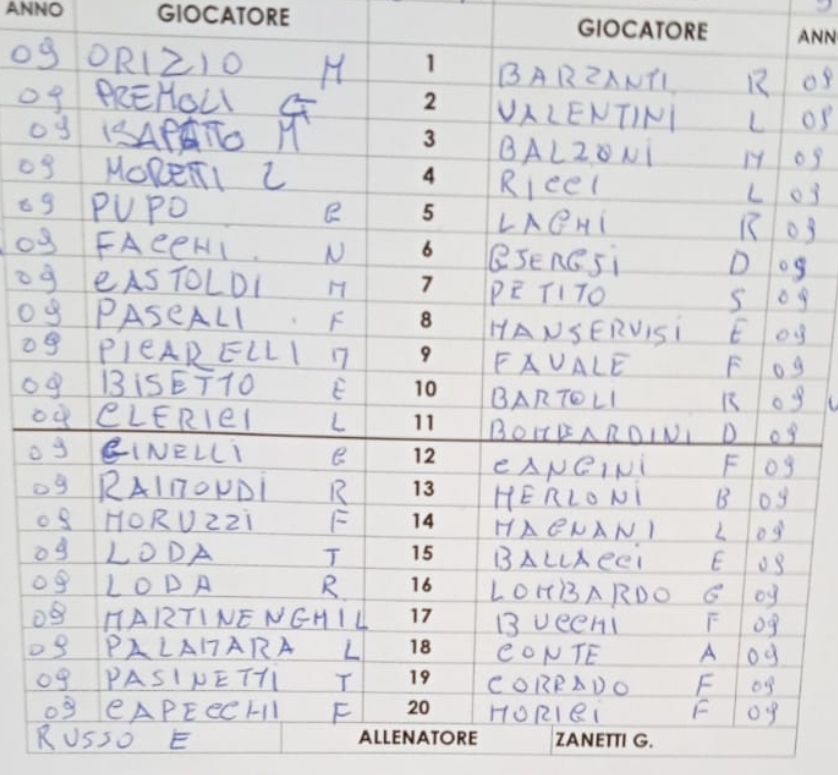 ANNO GIOCATORE GIOCATORE ANN
09 ORIZIO M 1 BARZANTI R 09
09 PREMOLI G 2 VALENTINI L 09
09 M 3 BALZONI M 09
09 MORETTI L 4 RICCI L 09
09 PUPO C 5 LAGHI R 09
09 FACCHI N 6 D 09
09 CASTOLDI M 7 PETITO S 09
09 PASCALI F 8 MANSERVISI E 09
09 PICARELLI M 9 FAVALE F 09
09 BISETTO E 10 BARTOLI R 09
09 CLERICI L 11 BOMBARDINI D 09
09 GINELLI C 12 CANGINI F 09
09 RAIMONDI R 13 MERLONI B 09
09 MORUZZI F 14 MAGNANI L 09
09 LODA T 15 BALLACCI E 09
09 LODA R 16 LOMBARDO G 09
09 MARTINENGHI L 17 BUCCHI F 09
09 PALAMARA L 18 CONTE A 09
09 PASINETTI T 19 CORRADO F 09
09 CAPECCHI F 20 MORICI F 09
RUSSO E ALLENATORE ZANETTI G.